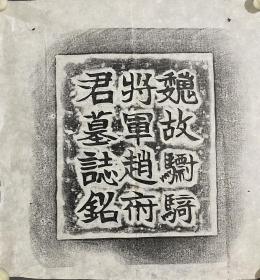 魏故驃騎
將軍趙府
君墓誌銘